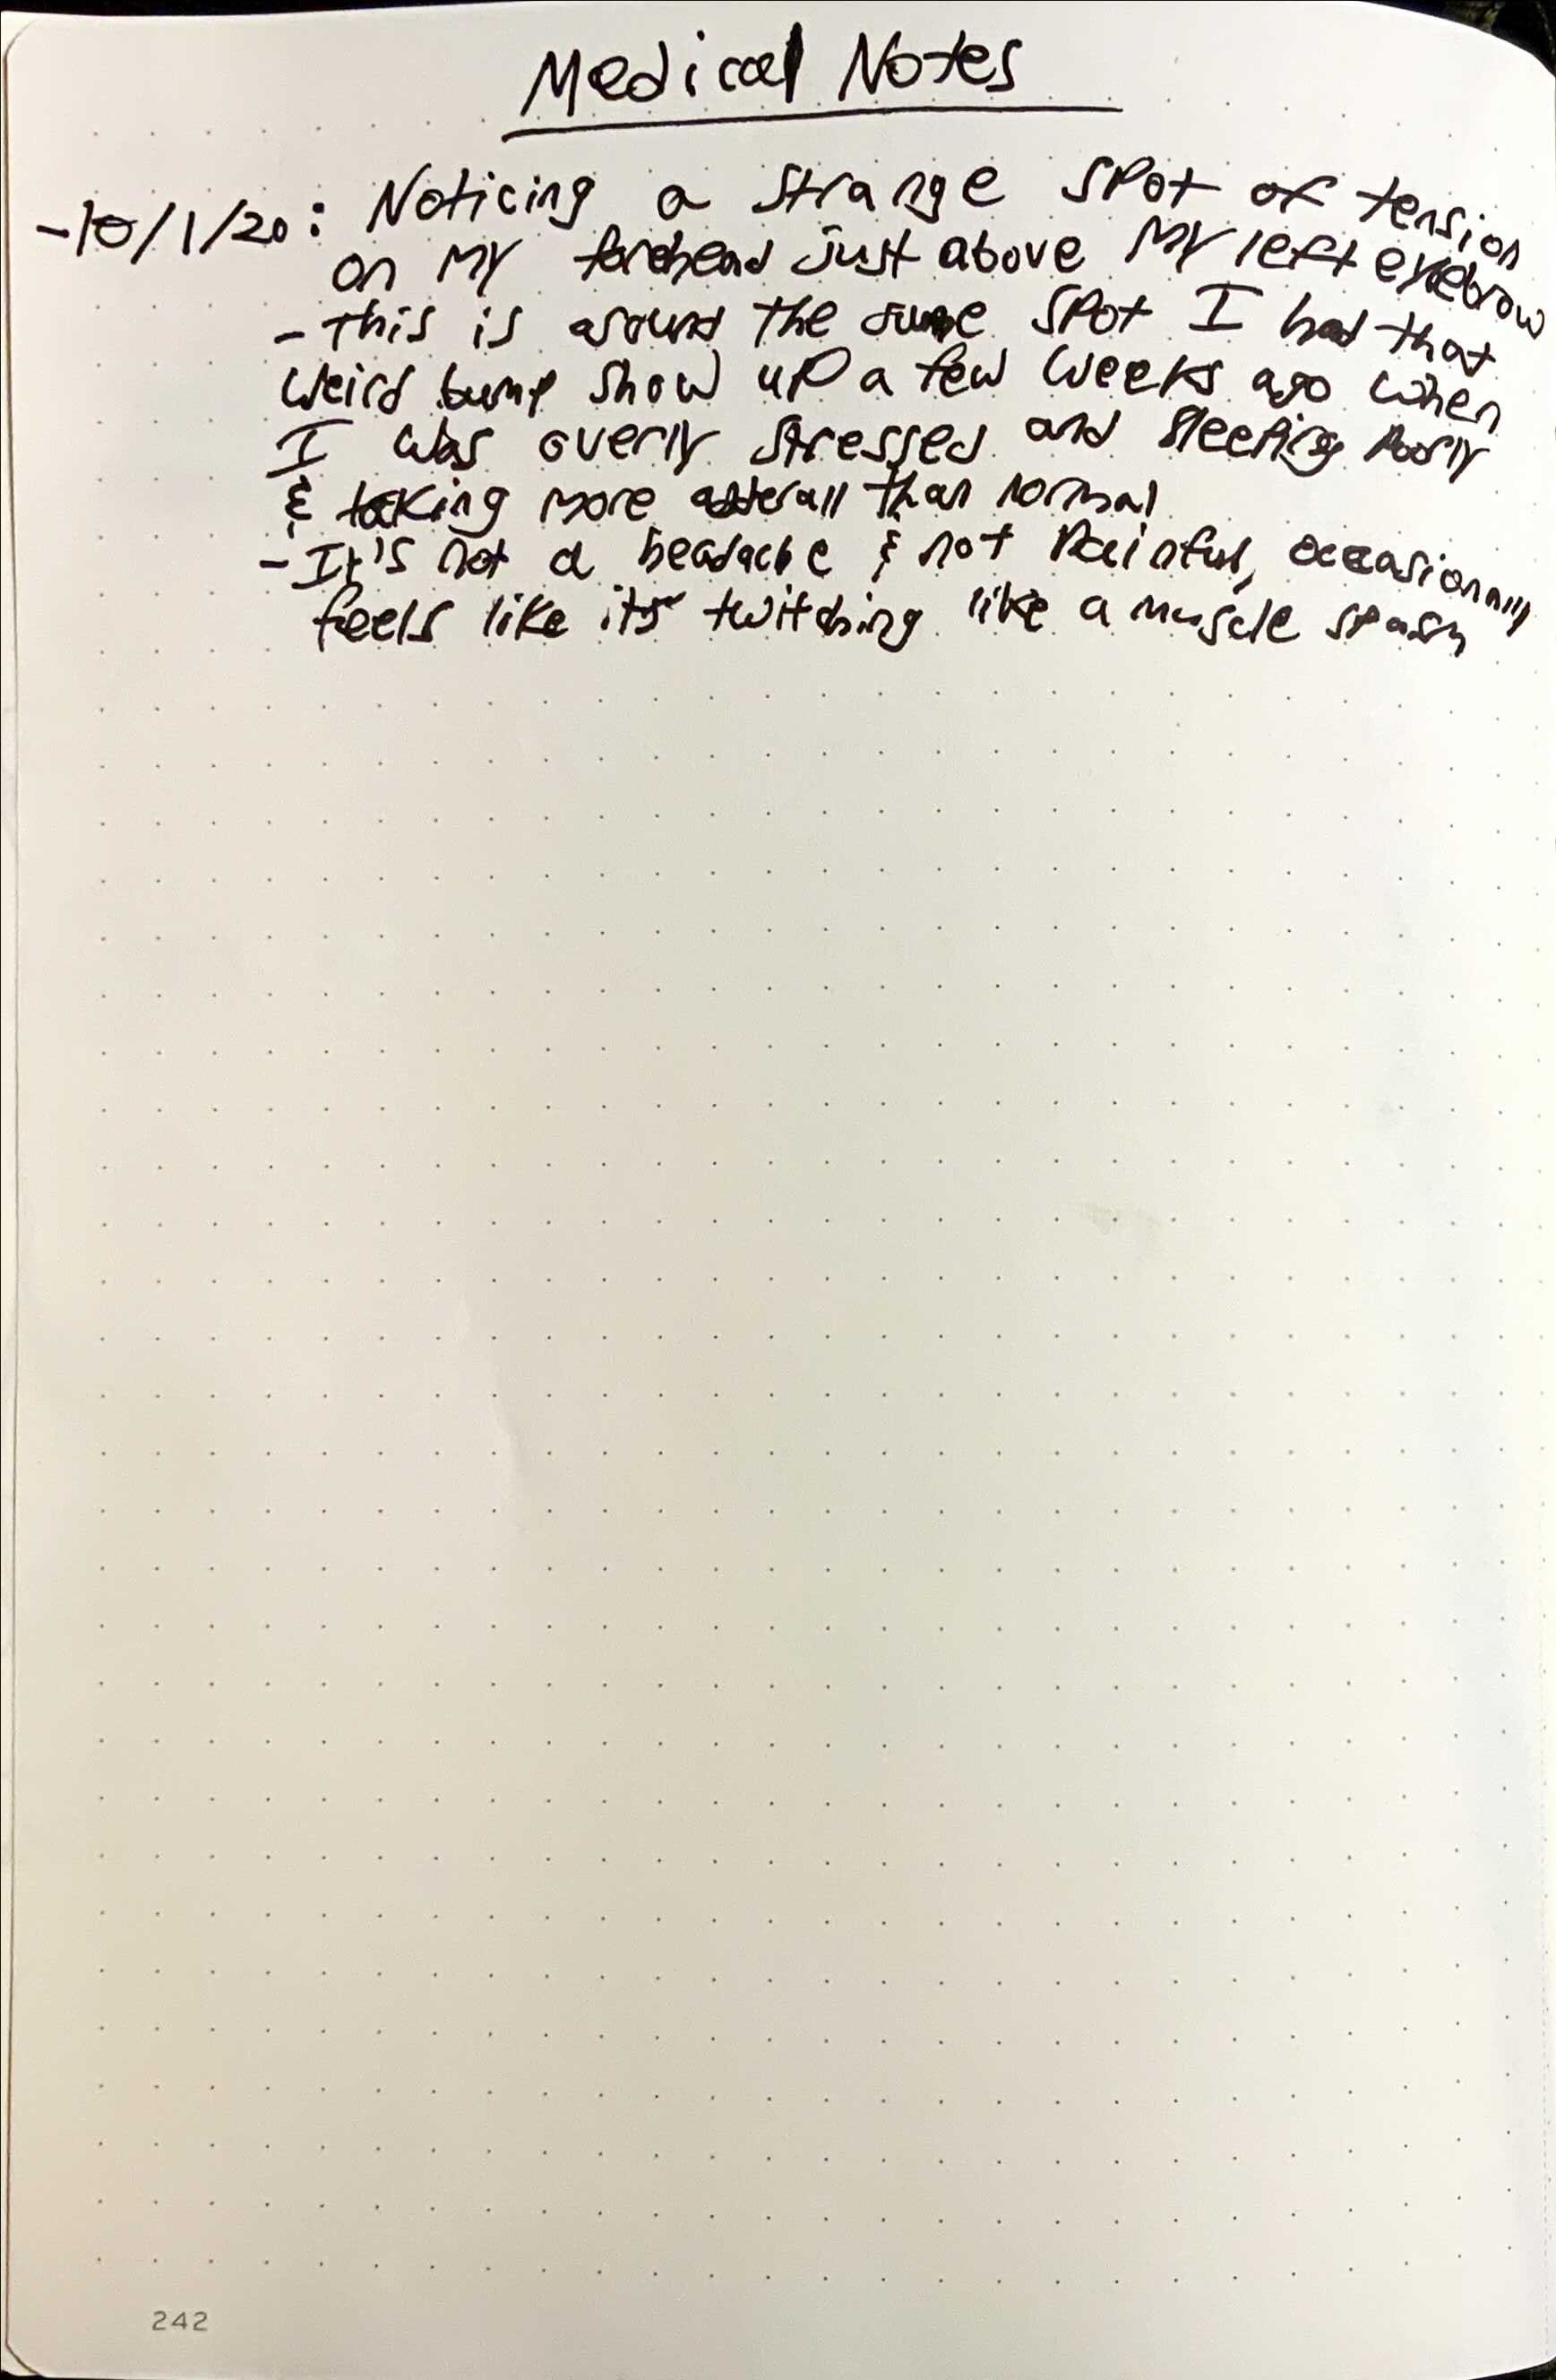 Medical Notes
-10/1/20: Noticing a strange spot of tension
on my forehead just above my left eyebrow
- This is around the same spot I had that
weird bump show up a few weeks ago when
I was overly stressed and sleeping poorly
& taking more than normal
- It's not a headache & not painful, occasionally
feels like its twitching like a muscle spasm
242